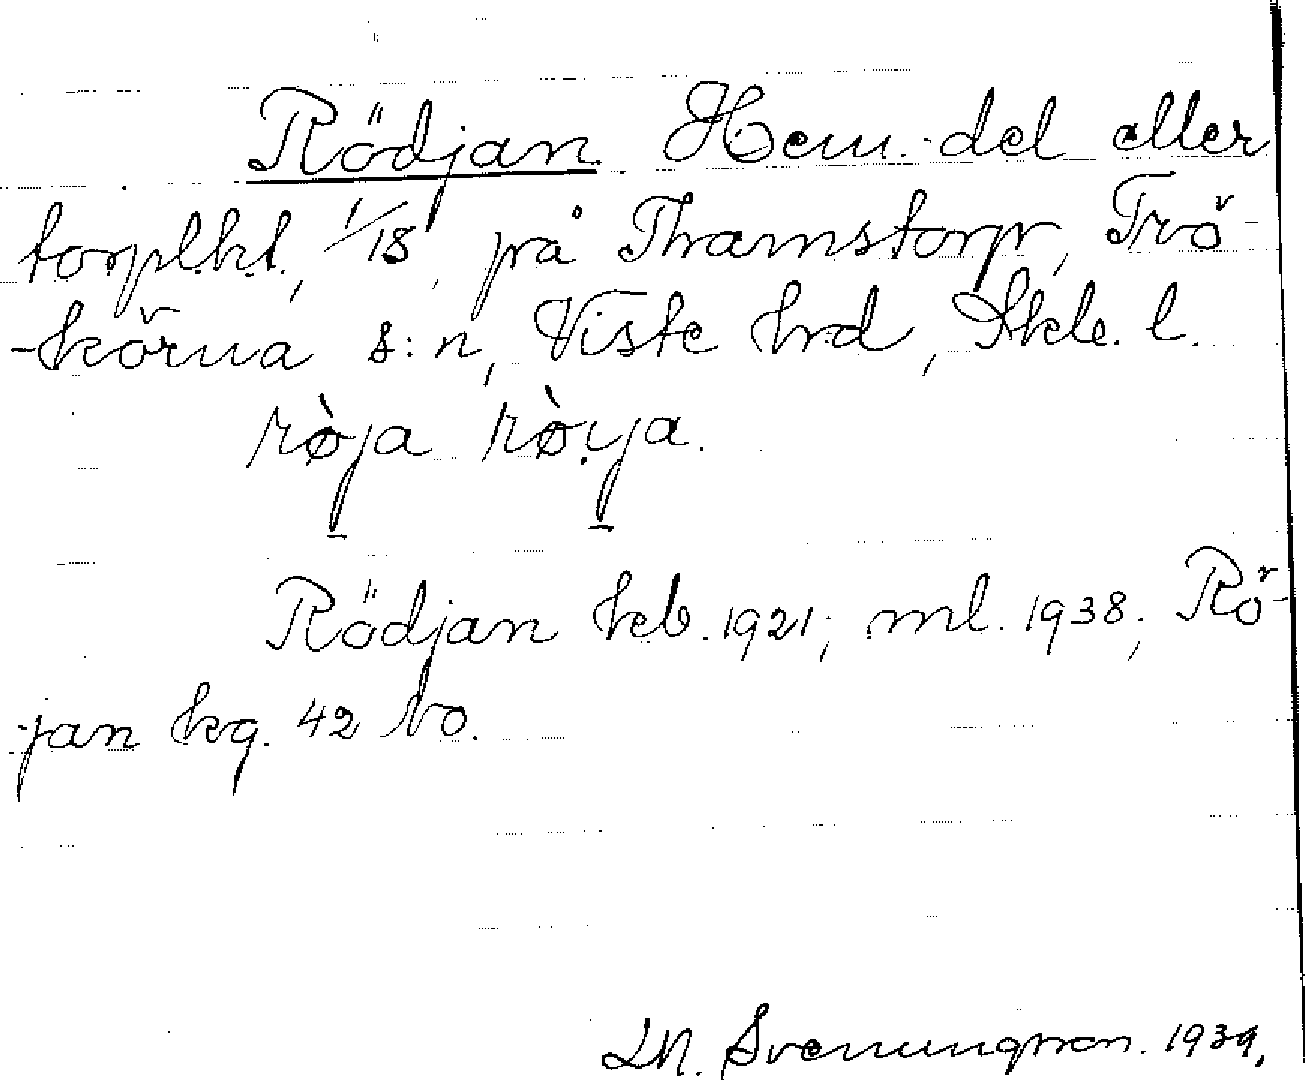 Rödjan. Hem.-del eller
torplht, 1/18, på Thamstorp, Trö-
-körna s:n, Viste hrd, Skb. l.
ròja ròya.
Rödjan kb. 1921; ml. 1938; Rö-
jan kg. 42 No.
Svenungsson. 1939,